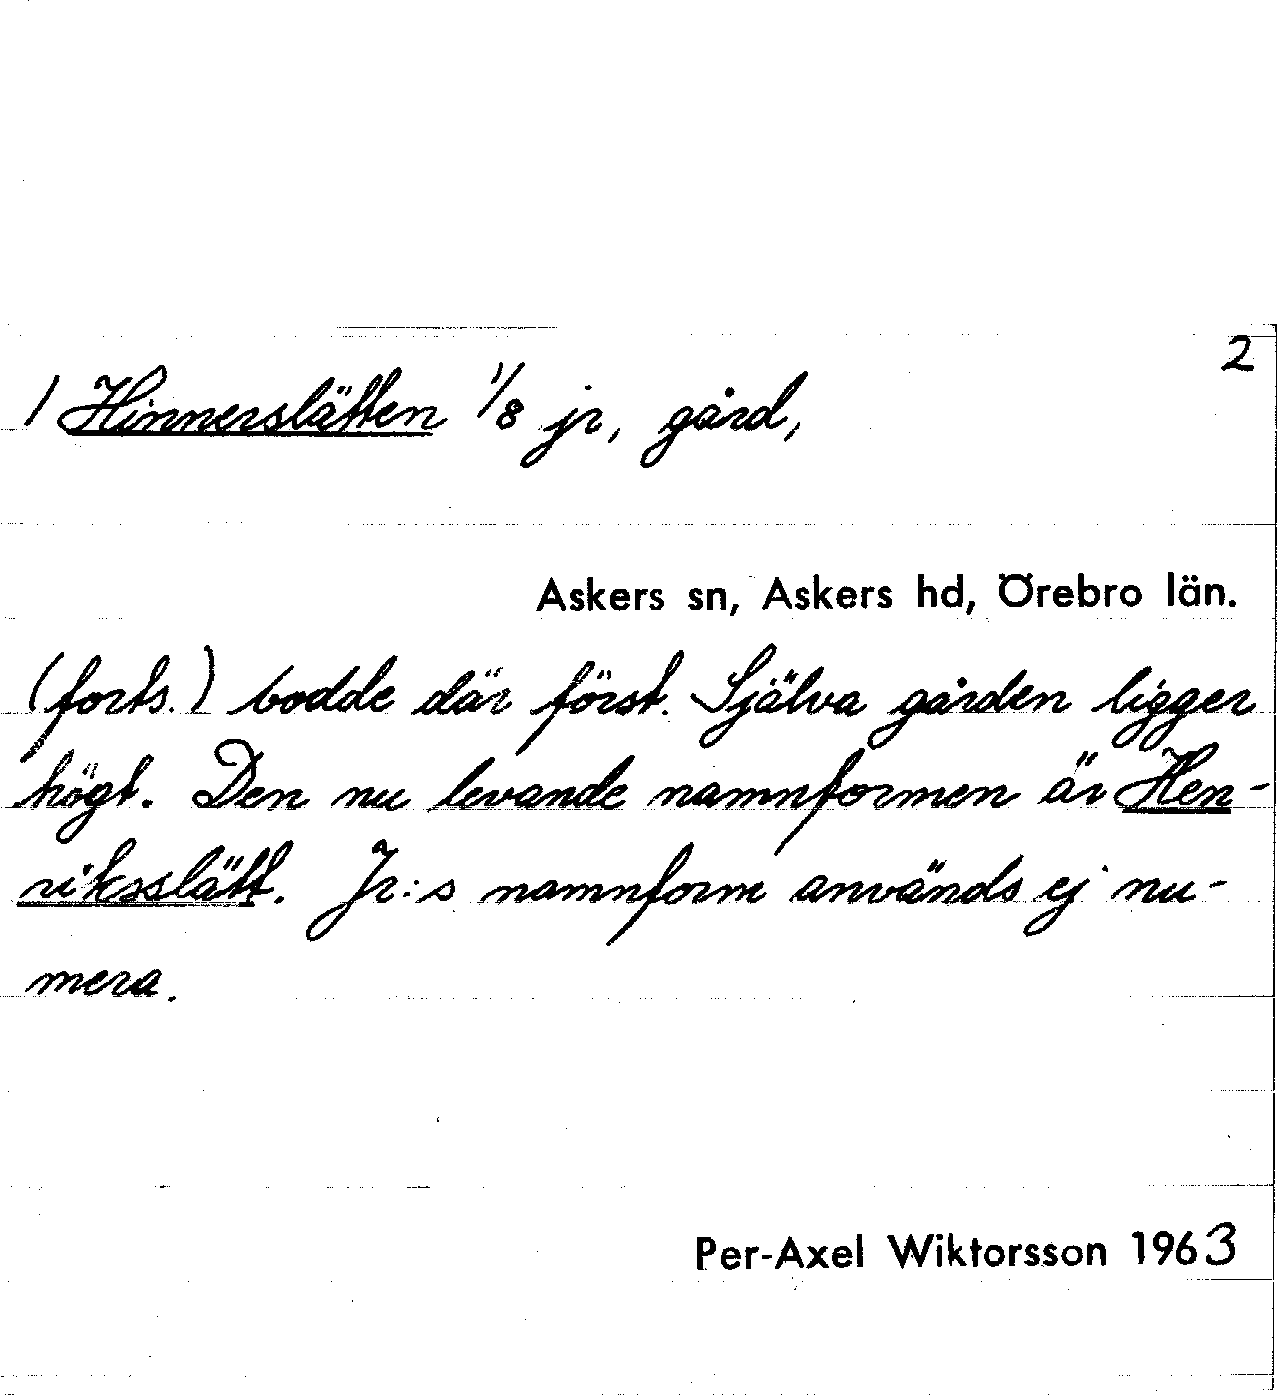 2
/ Hinnerslätten 1/8 jr, gård,
Askers sn, Askers hd, Örebro län.
(forts.) bodde där först. Själva gården ligger
högt. Den nu levande namnformen är Hen-
riksslätt. Jr:s namnform används ej nu-
mera.
Per-Axel Wiktorsson 1963